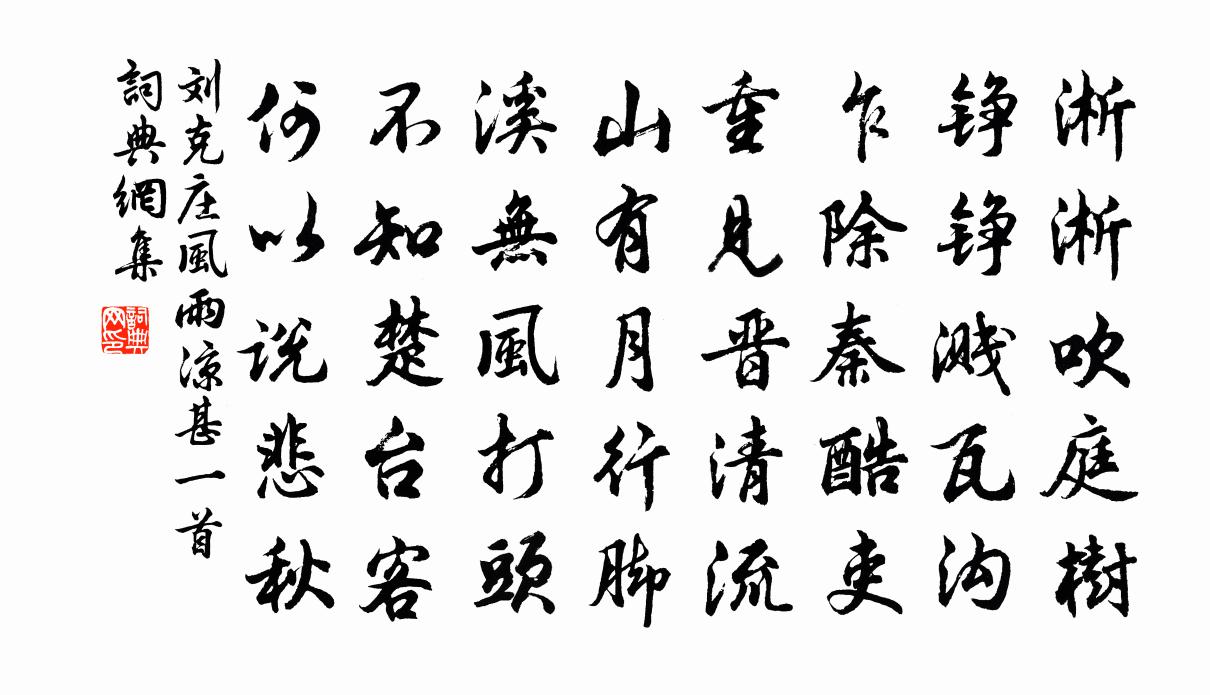 淅淅吹庭樹
铮铮溅瓦沟
乍除秦酷吏
重見晋清流
山有月行脚
溪無風打頭
不知楚台客
何以说悲秋
刘克庄風雨凉甚一首
詞典網集
詞典网印